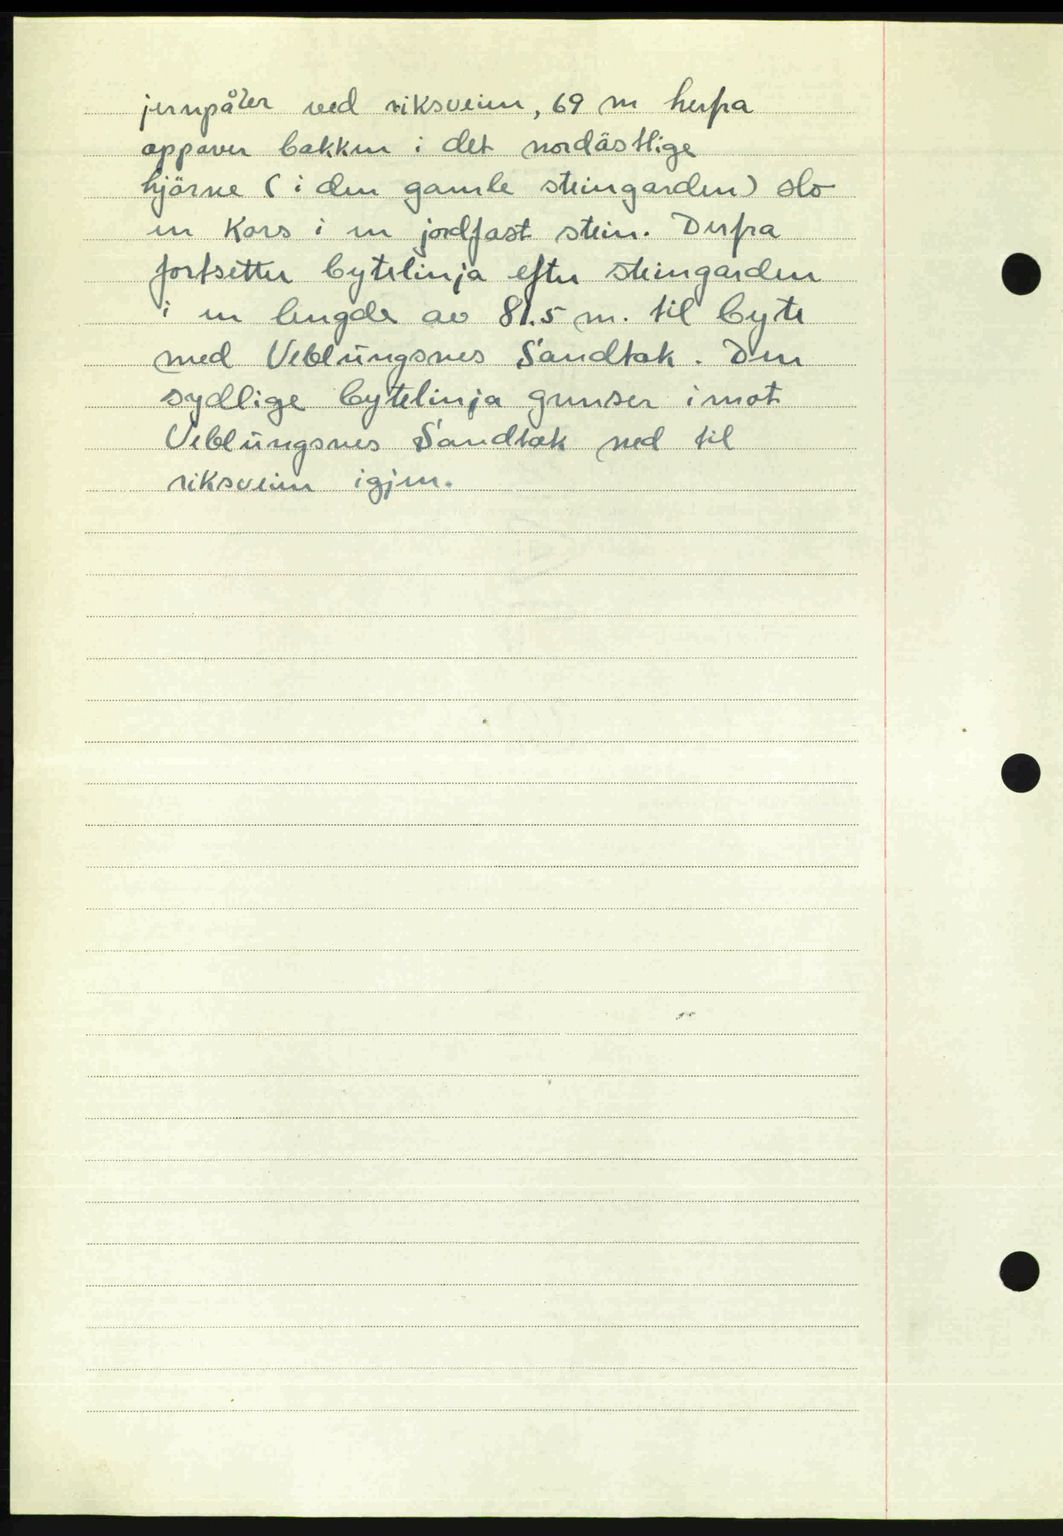 jernpåler ved riksveien, 69 m herfra
oppaver bakken i det nordästlige
hjörne (i den gamle steingarden) slo
en Kors i en jordfast stein. Derfra
fortsetter bytelinja efter steingarden
i en lengde av 81.5 m. til byte
med Veblüngsnes Sandtak. Den
sydlige bytelinja grenser imot
Veblüngsnes Sandtak ned til
riksveien igjen.